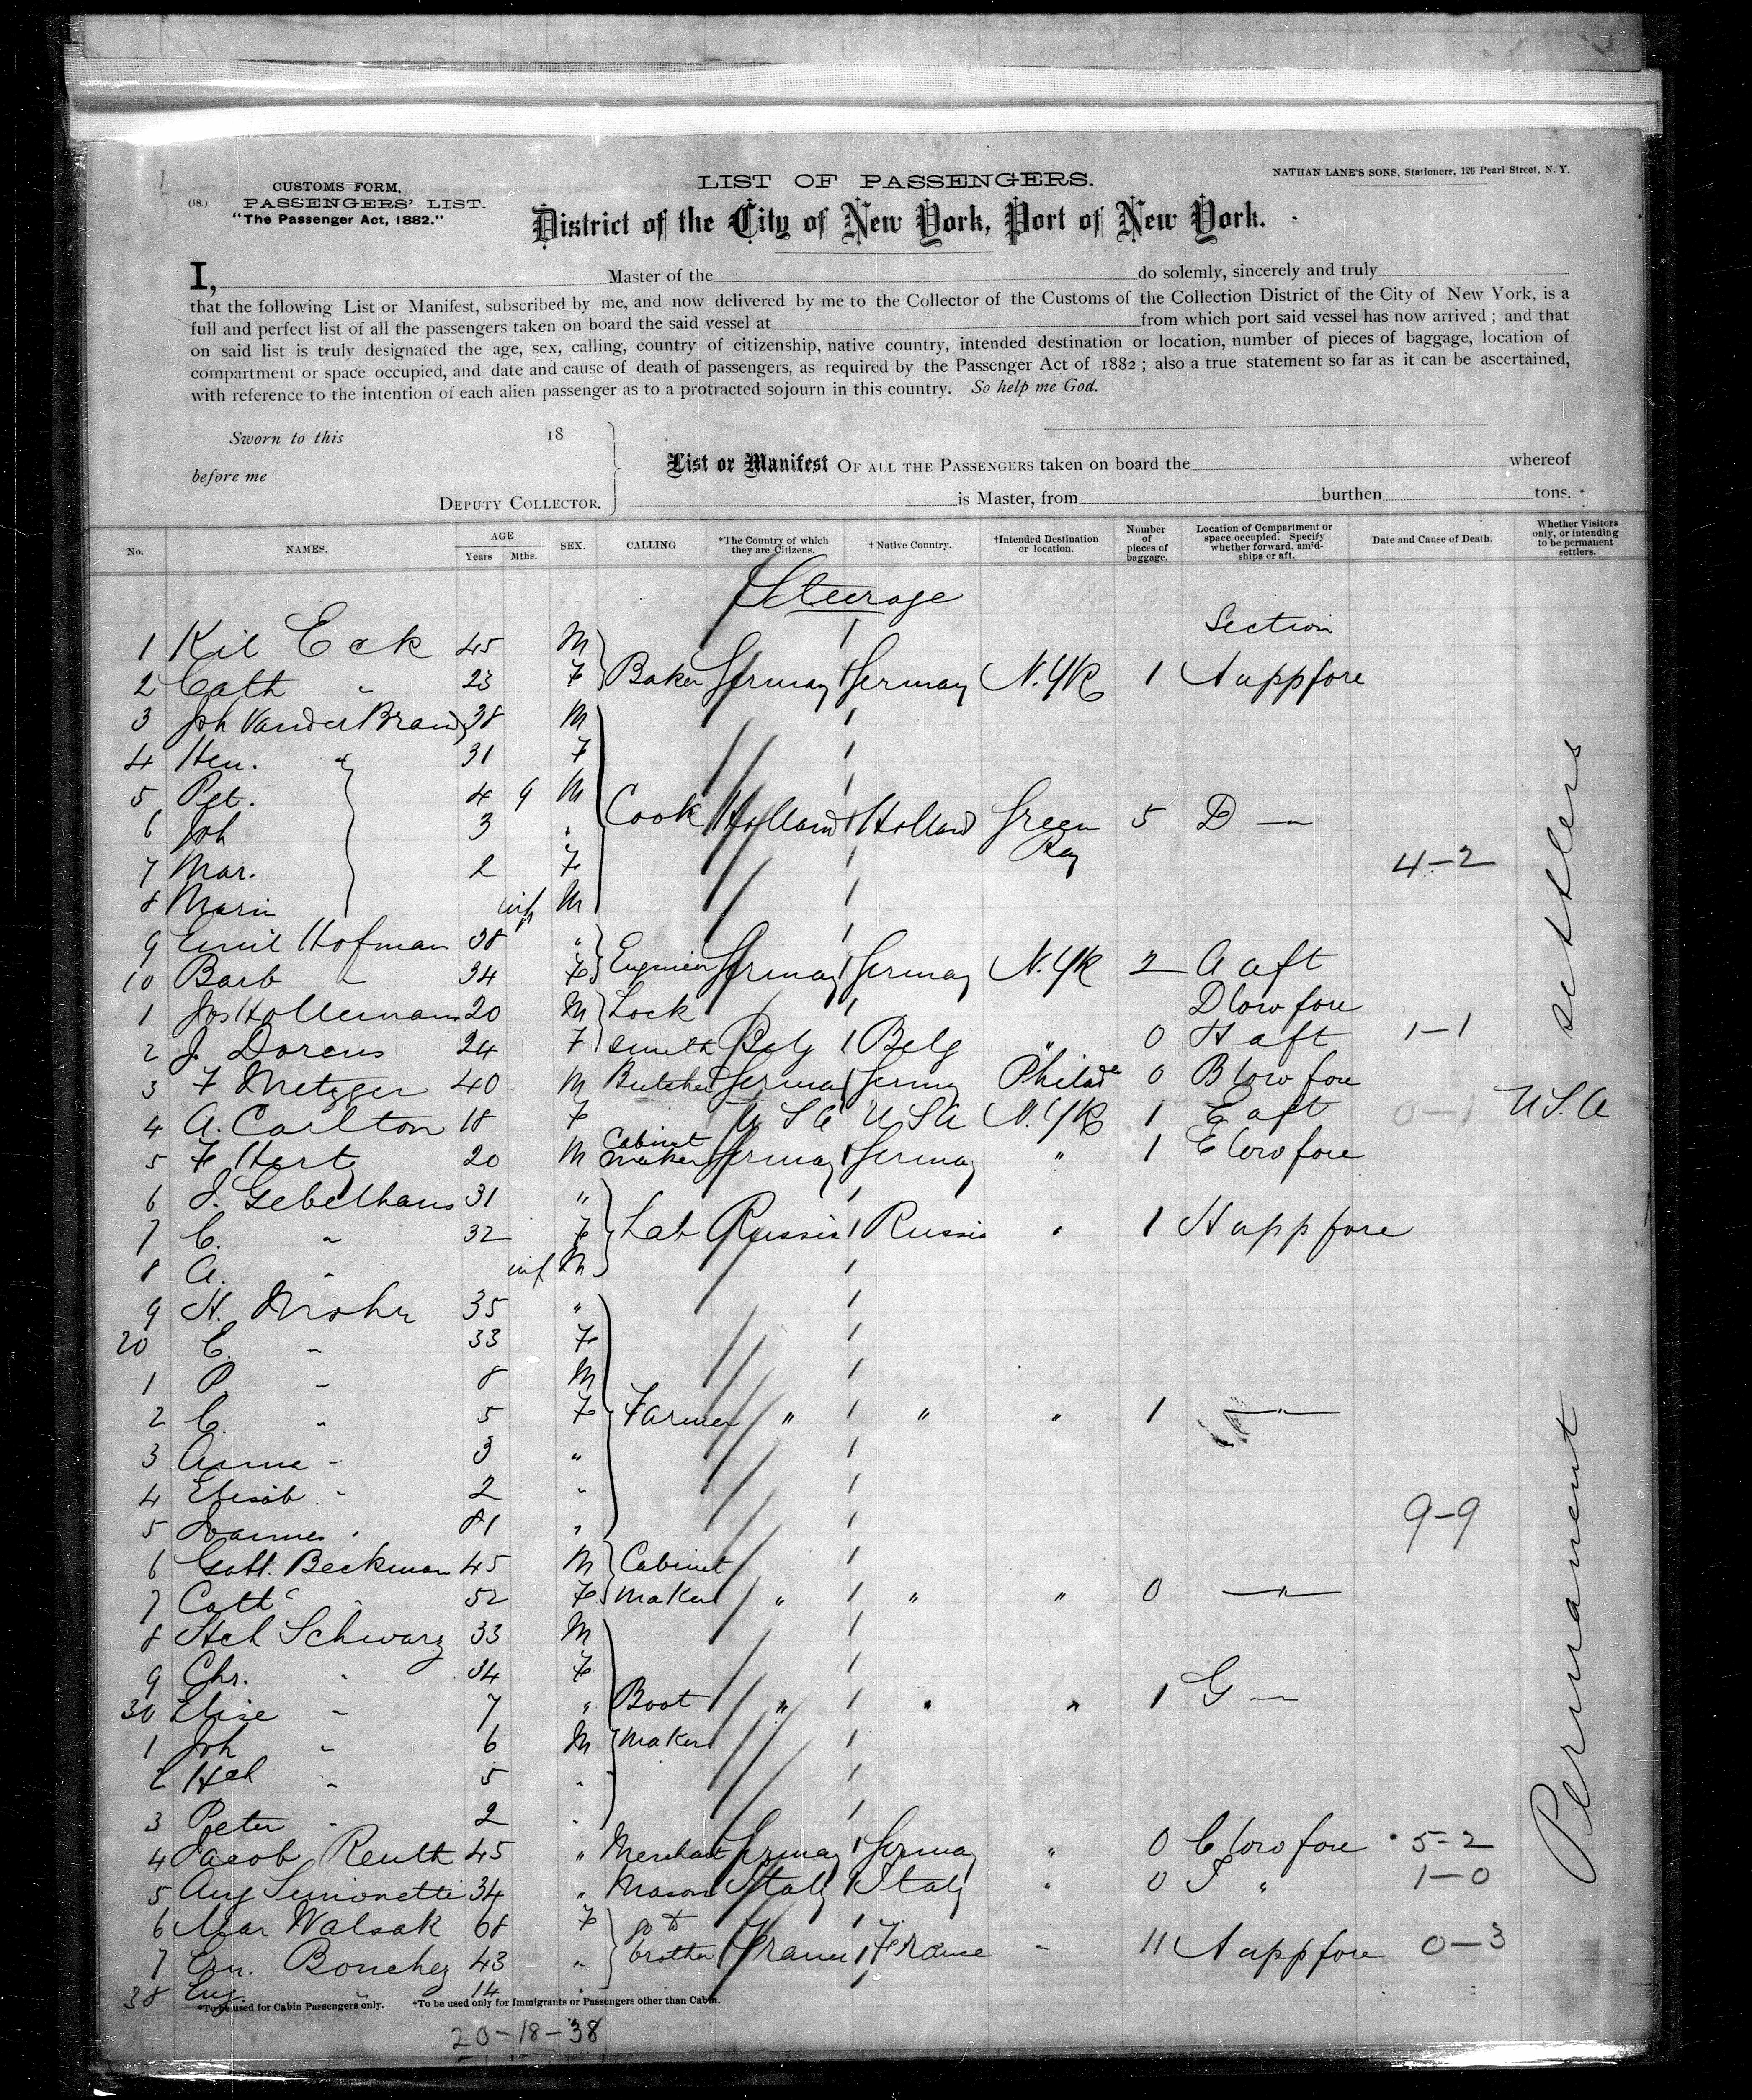 CUSTOMS FORM,
(18.) PASSENGERS' LIST.
"The Passenger Act, 1882."
LIST OF PASSENGERS.
NATHAN LANE'S SONS, Stationers, 126 Pearl Street, N. Y.
District of the City of New York, Port of New York.
I, Master of the do solemnly, sincerely and truly
that the following List or Manifest, subscribed by me, and now delivered by me to the Collector of the Customs of the Collection District of the City of New York, is a
full and perfect list of all the passengers taken on board the said vessel at from which port said vessel has now arrived ; and that
on said list is truly designated the age, sex, calling, country of citizenship, native country, intended destination or location, number of pieces of baggage, location of
compartment or space occupied, and date and cause of death of passengers, as required by the Passenger Act of 1882 ; also a true statement so far as it can be ascertained,
with reference to the intention of each alien passenger as to a protracted sojourn in this country. So help me God.
Sworn to this 18
before me
DEPUTY COLLECTOR.
List or Manifest OF ALL THE PASSENGERS taken on board the whereof
is Master, from burthen tons.
No. NAMES. AGE Years Mths. SEX. CALLING *The Country of which they are Citizens. †Native Country. †Intended Destination or location. Number of pieces of baggage. Location of Compartment or space occupied. Specify whether forward, amidships or aft. Date and Cause of Death. Whether Visitors only, or intending to be permanent settlers.
Steerage
Section
1 Kil Eck 45 M
2 Cath " 23 F Baker Germay Germay N.YK 1 A upp fore
3 Joh VanderBrand 38 M
4 Hen. " 31 F
5 Pet. 4 9 M
6 Joh 3 " Cook Holland Holland Green Bay 5 D —"—
7 Mar. 2 F 4-2
8 Marin inf M
9 Emil Hofman 38 "
10 Barb " 34 F Engineer Germay Germay N.YK 2 A aft
1 Jos Holleman 20 M Lock D low fore
2 J. Dorens 24 F smith Belg Belg " 0 H aft 1-1
3 F Metzger 40 M Butcher Germa Germy Philad 0 B low fore
4 A. Carlton 18 F U S A U S A N.YK 1 E aft 0-1 U.S.A
5 F Hertz 20 M Cabinet maker Germay Germay " 1 E low fore
6 J. Gebelhaus 31 "
7 C. " 32 F Lab Russia Russia " 1 H upp fore
8 A. " inf M
9 H. Mohr 35 "
20 E. " 33 F
1 P. " 8 M
2 C. " 5 F Farmer " " " 1 —"—
3 Anna " 3 "
4 Elisab. " 2 "
5 Joannes " 1 " 9-9
6 Gott. Beckman 45 M Cabinet
7 Cath " 52 F Maker " " " 0 —"—
8 Hch Schwarz 33 M
9 Chr. " 34 F
30 Elise " 7 " Boot " " " 1 G —"—
1 Joh " 6 M Maker
2 Hch " 5 "
3 Peter " 2 "
4 Jacob Reuth 45 " Merchant Germay Germay " 0 C low fore 5-2
5 Aug Simonetti 34 " Mason Italy Italy " 0 J " 1-0
6 Mar Walsak 68 F
7 Ern. Bouchez 43 " brother France France " 11 A upp fore 0-3
38 Eug. " 14 "
Permanent settlers
*To be used for Cabin Passengers only. †To be used only for Immigrants or Passengers other than Cabin.
20-18-38